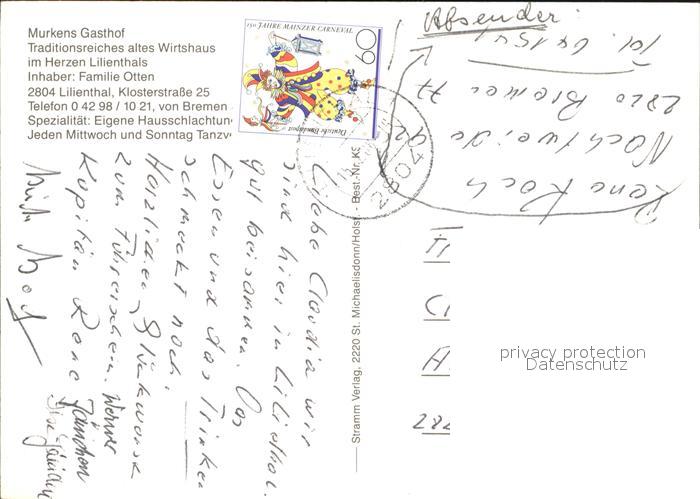 Murkens Gasthof
Traditionsreiches altes Wirtshaus
im Herzen Lilienthals
Inhaber: Familie Otten
2804 Lilienthal, Klosterstraße 25
Telefon 0 42 98 / 10 21, von Bremen
Spezialität: Eigene Hausschlachtun
Jeden Mittwoch und Sonntag Tanzv
150 JAHRE MAINZER CARNEVAL
60
Deutsche Bundespost
2804
Absender:
Rene Koch
Nachtweide 92
2820 Bremen 77
Tel.
Liebe Claudia wir
sind hier in Lilienthal
gut beisammen. Das
Essen und das Trinken
schmeckt noch.
Herzlichen Glückwunsch
zum Führerschein.
Kapitän Rene
Werner
Jämichen
Stramm Verlag, 2220 St. Michaelisdonn/Holst. - Best.-Nr. KS
282
privacy protection
Datenschutz